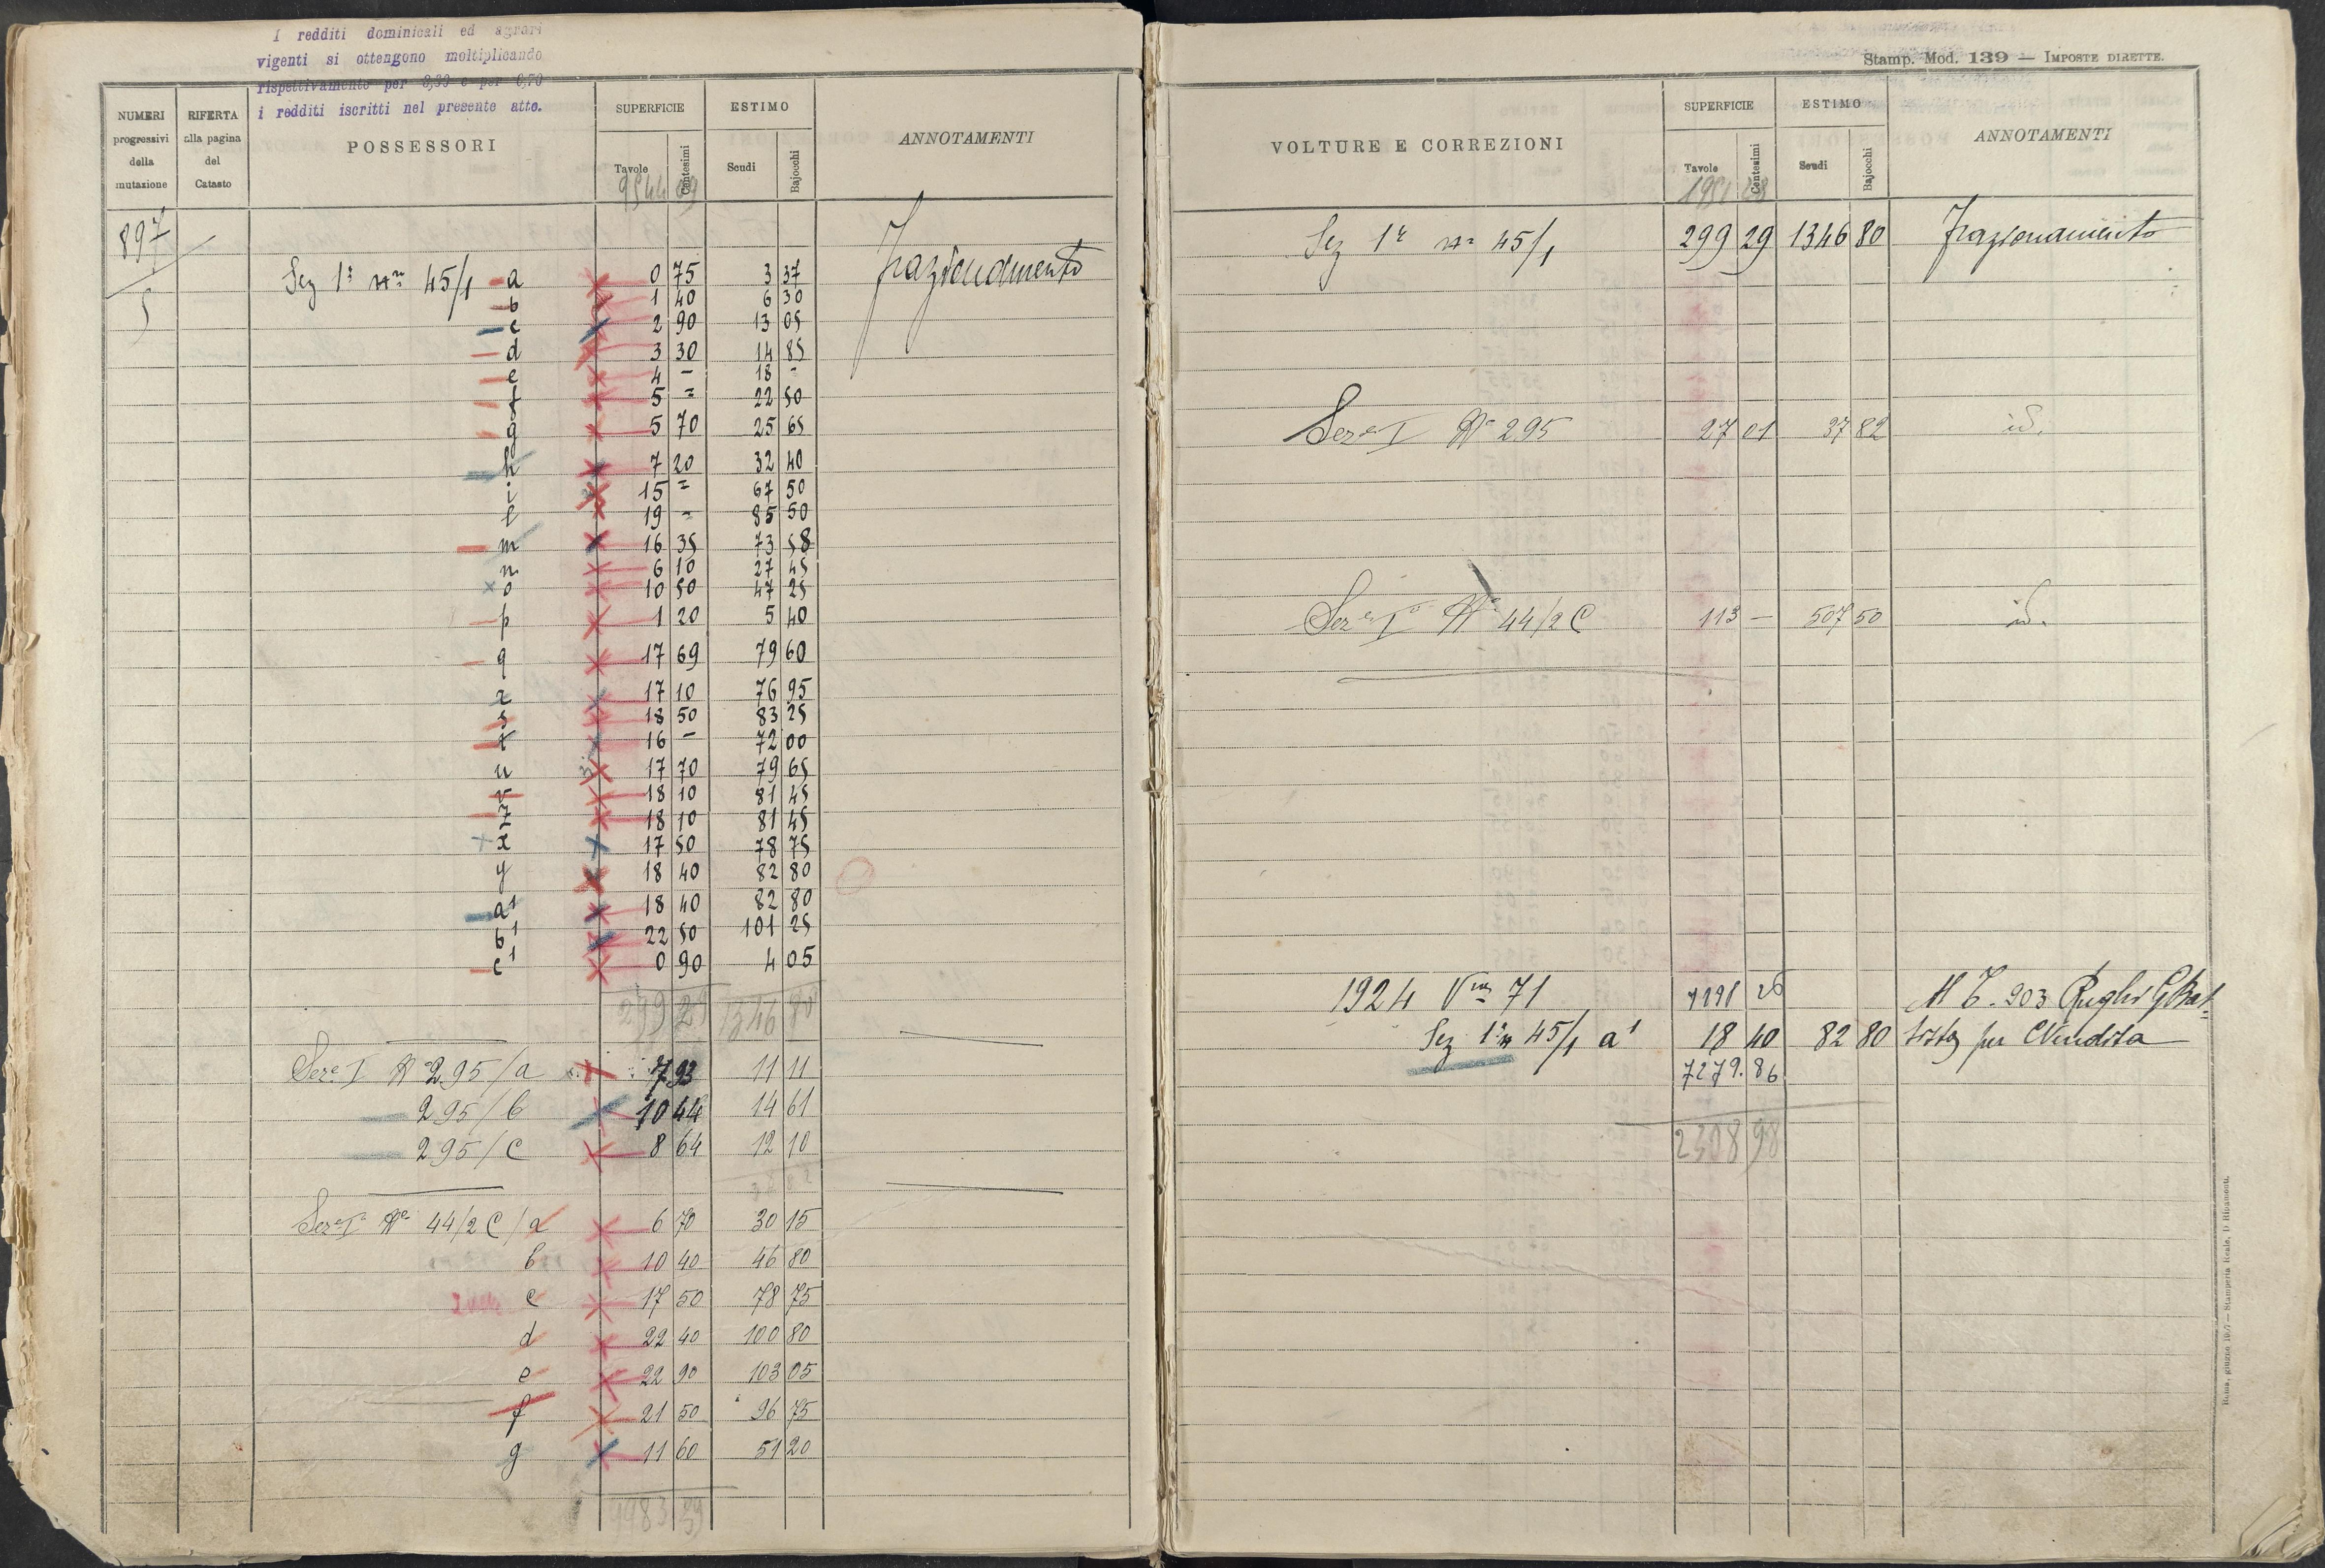 I redditi dominicali ed agrari
vigenti si ottengono moltiplicando
rispettivamente per 3,33 e per 0,70
i redditi iscritti nel presente atto.
NUMERI progressivi della mutazione
RIFERTA alla pagina del Catasto
POSSESSORI
SUPERFICIE
Tavole Centesimi
ESTIMO
Scudi Bajocchi
ANNOTAMENTI
9544 09
897
5
Frazionamento
Sez 1ª nº 45/1 a 0 75 3 37
b 1 40 6 30
c 2 90 13 05
d 3 30 14 85
e 4 - 18 -
f 5 = 22 50
g 5 70 25 65
h 7 20 32 40
i 15 = 67 50
l 19 = 85 50
m 16 35 73 58
n 6 10 27 45
o 10 50 47 25
p 1 20 5 40
q 17 69 79 60
r 17 10 76 95
s 18 50 83 25
t 16 - 72 00
u 17 70 79 65
v 18 10 81 45
z 18 10 81 45
x 17 50 78 75
y 18 40 82 80
a¹ 18 40 82 80
b¹ 22 50 101 25
c¹ 0 90 4 05
299 29 1346 80
Sez. I Nº 295/a 7 93 11 11
295/b 10 44 14 61
295/c 8 64 12 10
37 82
Sez. I Nº 44/2 C/a 6 70 30 15
b 10 40 46 80
c 17 50 78 75
d 22 40 100 80
e 22 90 103 05
f 21 50 96 75
g 11 60 51 20
9983 39
Stamp. Mod. 139 — IMPOSTE DIRETTE.
VOLTURE E CORREZIONI
SUPERFICIE
Tavole Centesimi
ESTIMO
Scudi Bajocchi
ANNOTAMENTI
1951 28
Sez 1ª nº 45/1 299 29 1346 80 Frazionamento
Sez. I Nº 295 27 01 37 82 id.
Sez. I Nº 44/2 C 113 — 507 50 id.
1924 Vra 71 M T. 903 Rughi G Bat=
Sez 1ª n 45/1 a¹ 18 40 82 80 tista per Vendita
7279.86
2308 98
Roma, giugno — Stamperia Reale, D. Ripamonti.